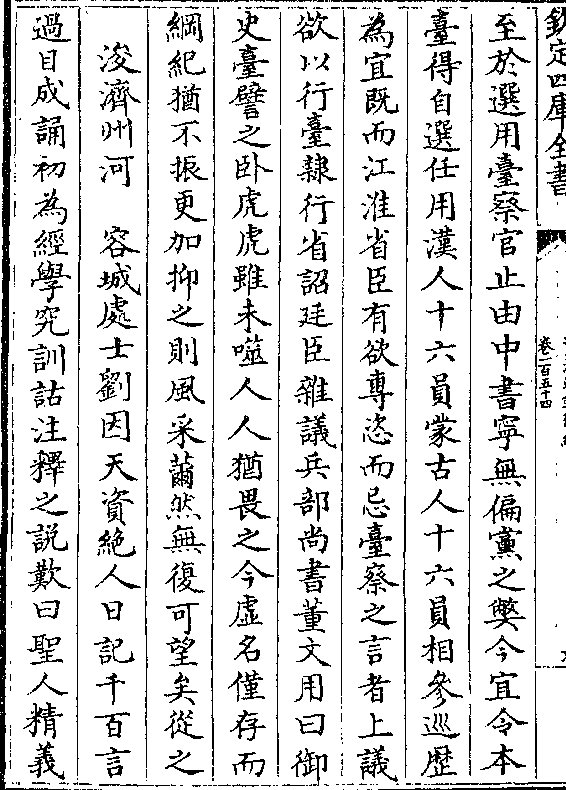 欽定四庫全書
卷一百五十四
至於選用臺察官止由中書寧無偏黨之弊今宜令本
臺得自選任用漢人十六員蒙古人十六員相參巡歴
為宜既而江淮省臣有欲專恣而忌臺察之言者上議
欲以行臺隸行省詔廷臣雜議兵部尚書董文用曰御
史臺譬之卧虎虎雖未噬人人猶畏之今虚名僅存而
綱紀猶不振更加抑之則風采薾然無復可望矣從之
浚濟州河　容城處士劉因天資絶人日記千百言
過目成誦初為經學究訓詁注釋之説歎曰聖人精義